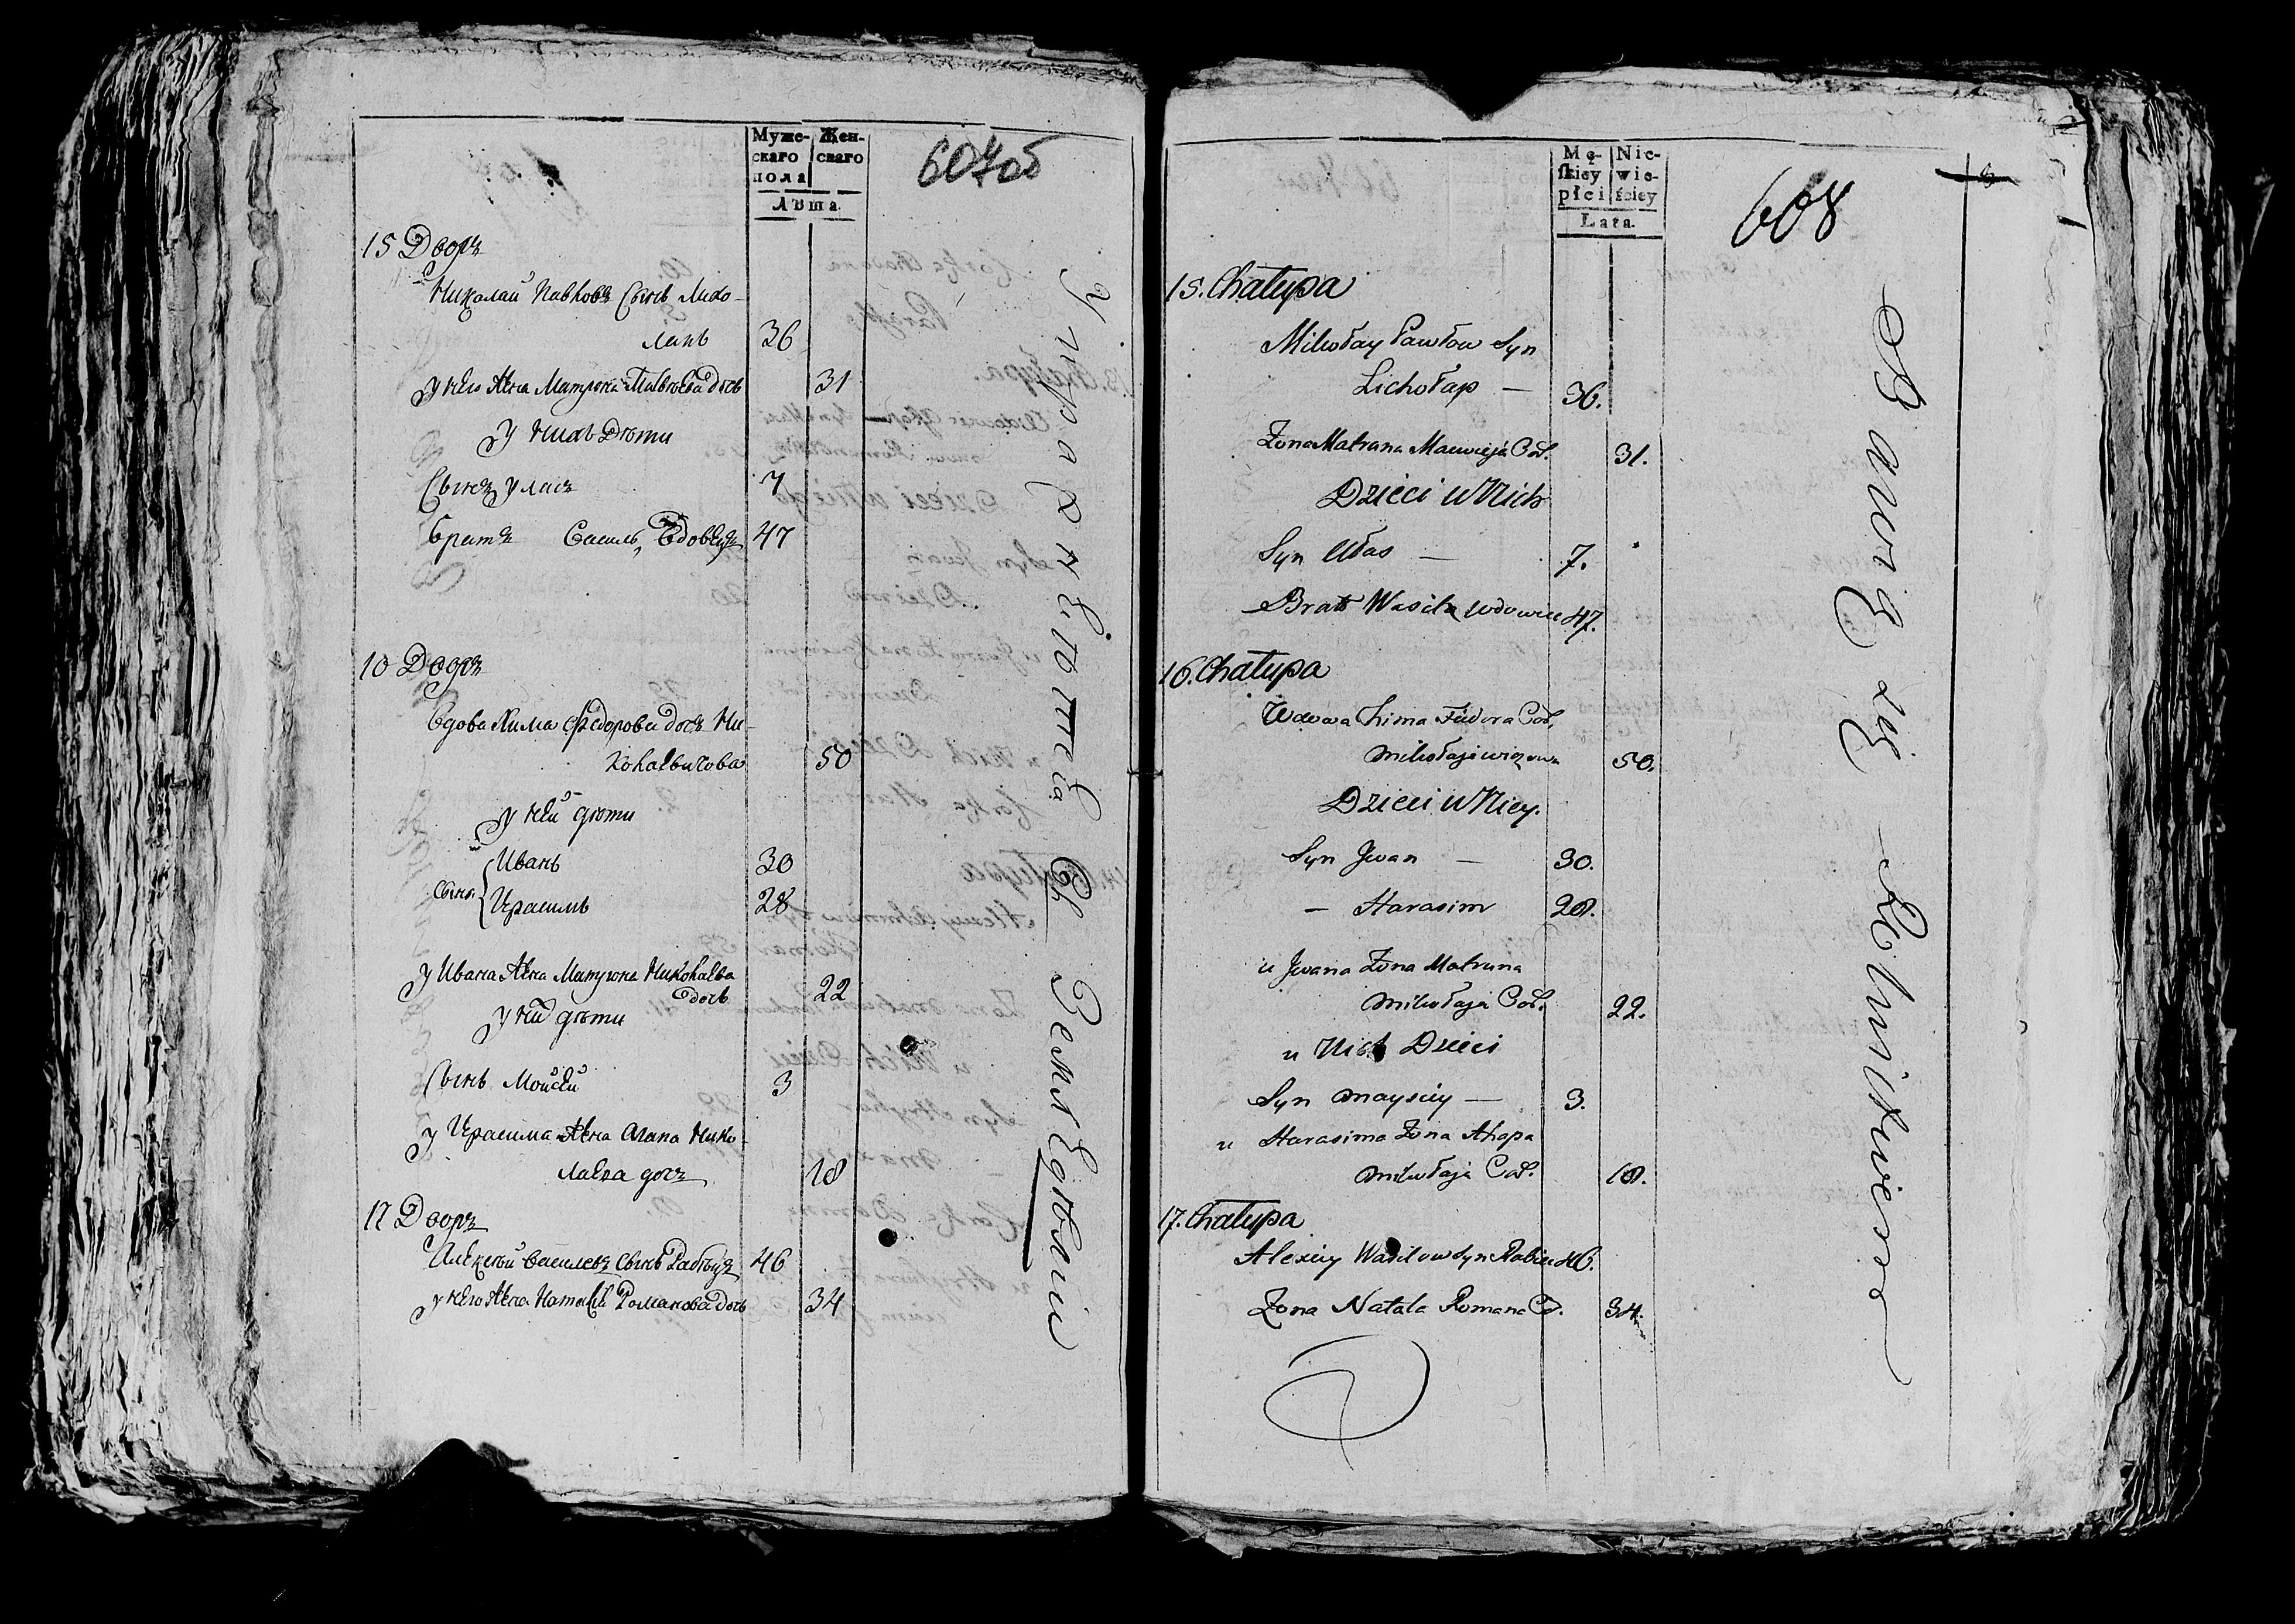 Муже-
скаго
пола
Жен-
скаго
Лѣта.
607об
15 Дворъ
Николай Павловъ Сынъ Лихо-
лапъ 36
у него жена Матрона Матвѣева дочь 31
у нихъ Дѣти
Сынъ Уласъ 7
братъ Василь, Вдовецъ 47
16 Дворъ
Вдова Хима Федорова дочь Ни-
колаевичова 50
у ней дѣти
Сыны
Иванъ 30
Герасимъ 28
у Ивана жена Матрона Николаева
дочь 22
у ней дѣти
Сынъ Мойсей 3
у Герасима жена Агапа Нико-
лаева дочь 18
17 Дворъ
Алексѣй Василевъ Сынъ Рабецъ 46
у него жена Наталья Романова дочь 34
Упражняются Въ Земледѣліи
Mę-
skiey
płci
Nie-
wie-
ściey
Lata.
608
15. Chałupa
Mikołay Pawłow Syn
Lichołap — 36.
Zona Matrana Macwieja Cór. 31.
Dzieci u Nich
Syn Ułas — 7.
Brat Wasil Wdowiec 47.
16. Chałupa
Wdowa Chima Fiedora Cór.
Mikołajewiczowa 50.
Dzieci u Niey.
Syn Jwan — 30.
— Harasim 28.
u Jwana Zona Matruna
Mikołaja Cór. 22.
u Nich Dzieci
Syn Maysiey — 3.
u Harasima Zona Ahapa
Mikołaja Cór. 18.
17. Chałupa
Alexiey Wasilow Syn Rabiec 46.
Zona Natala Romana Cór. 34.
Bawią się Rolnictwem